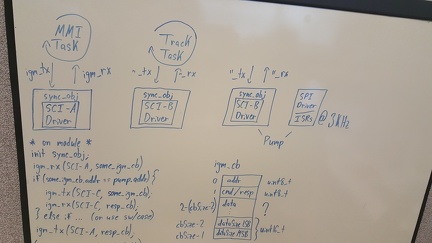 MMI
Task
Track
Task
igm_tx
igm_rx
"_tx
"_rx
"_tx
"_rx
sync_obj
SCI-A
Driver
sync_obj
SCI-B
Driver
sync_obj
SCI-B
Driver
SPI
Driver
ISRs
@3KHz
Pump
* on module *
init sync_obj;
igm_rx(SCI-A, some_igm_cb)
if (some_igm_cb.addr == pump.addr) {
igm_tx(SCI-C, some_igm_cb);
igm_rx(SCI-C, resp_cb);
} else if ... (or use sw/case)
igm_tx(SCI-A, resp_cb);
igm_cb
0 addr uint8_t
1 cmd/resp. uint8_t
data ?
cbSize-2 dataSize MSB
cbSize-1 dataSize LSB